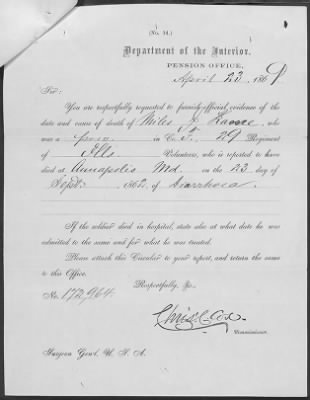 (No. 14.)
Department of the Interior,
PENSION OFFICE,
April 23, 1869
Sir:
You are respectfully requested to furnish official evidence of the
date and cause of death of Miles J. who
was a priv in Co. F. 29 Regiment
of Ills Volunteers, who is reported to have
died at Annapolis Md. on the 23 day of
Sept. , 1862, of Diarrhoea.
If the soldier died in hospital, state also at what date he was
admitted to the same and for what he was treated.
Please attach this Circular to your report, and return the same
to this Office.
Respectfully, &c.,
No. 172,964
Chris. C. Cox,
Commissioner.
Surgeon Genl. U. S. A.